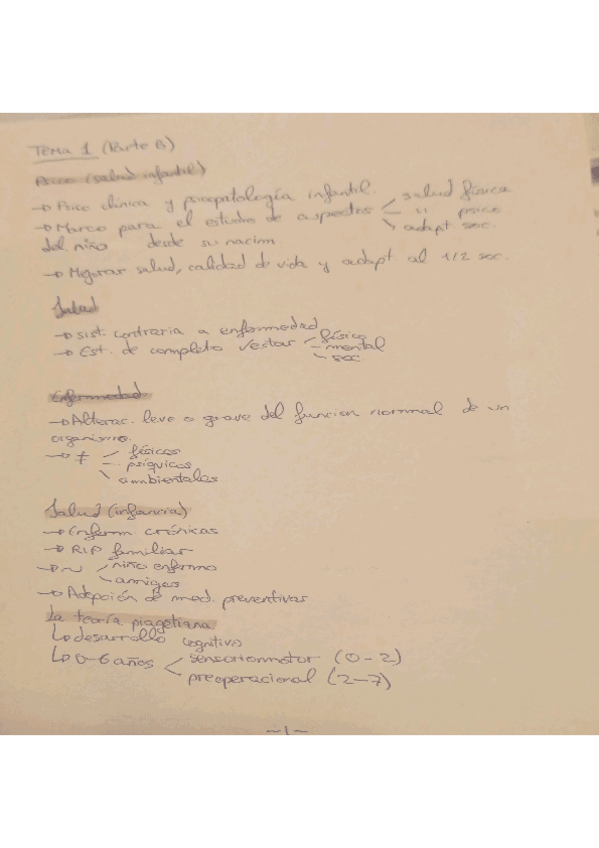 Tema 1 (Parte B)
Psico (salud infantil)
→ Psico clínica y psicopatología infantil.
→ Marco para el estudio de aspectos salud física
" psico
adapt soc.
del niño desde su nacim
→ Mejorar salud, calidad de vida y adapt al 1/2 soc.
Salud
→ sist. contraria a enfermedad
→ Est. de completo físico
mental
soc
Enfermedad
→ Alterac. leve o grave del funcion normal de un
organismo.
→ ≠ físicos
psíquicos
ambientales
Salud (infancia)
→ Enferm crónicas
→ familiar
→ ~ niño enfermo
amigos
→ Adopción de med. preventivas
La teoría piagetiana
↳ desarrollo cognitivo
↳ 0-6 años sensoriomotor (0-2)
preoperacional (2-7)
~1~